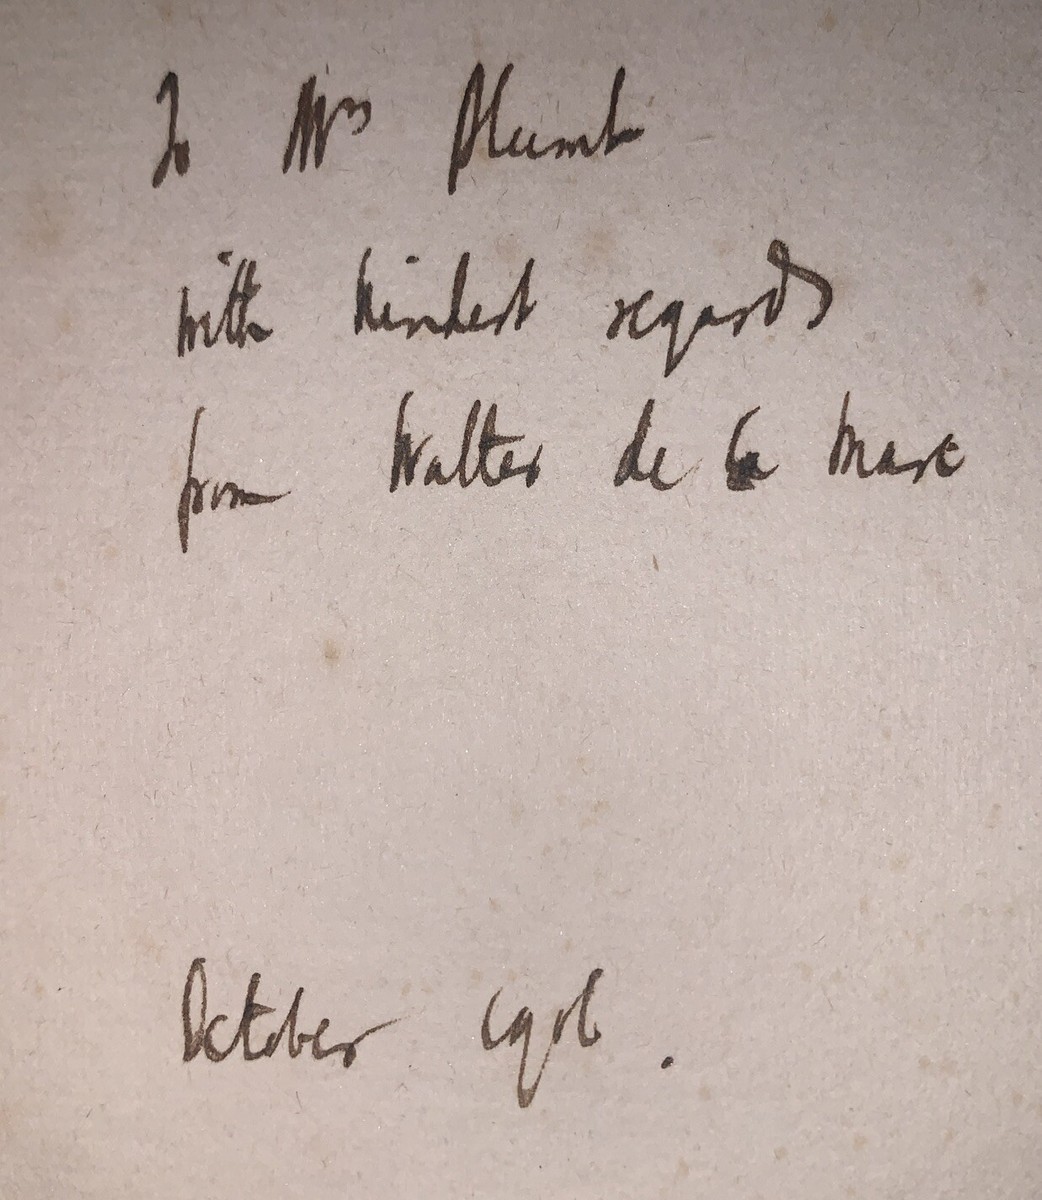 To Mrs Plumb
with kindest regards
from Walter de la Mare
October 1906.